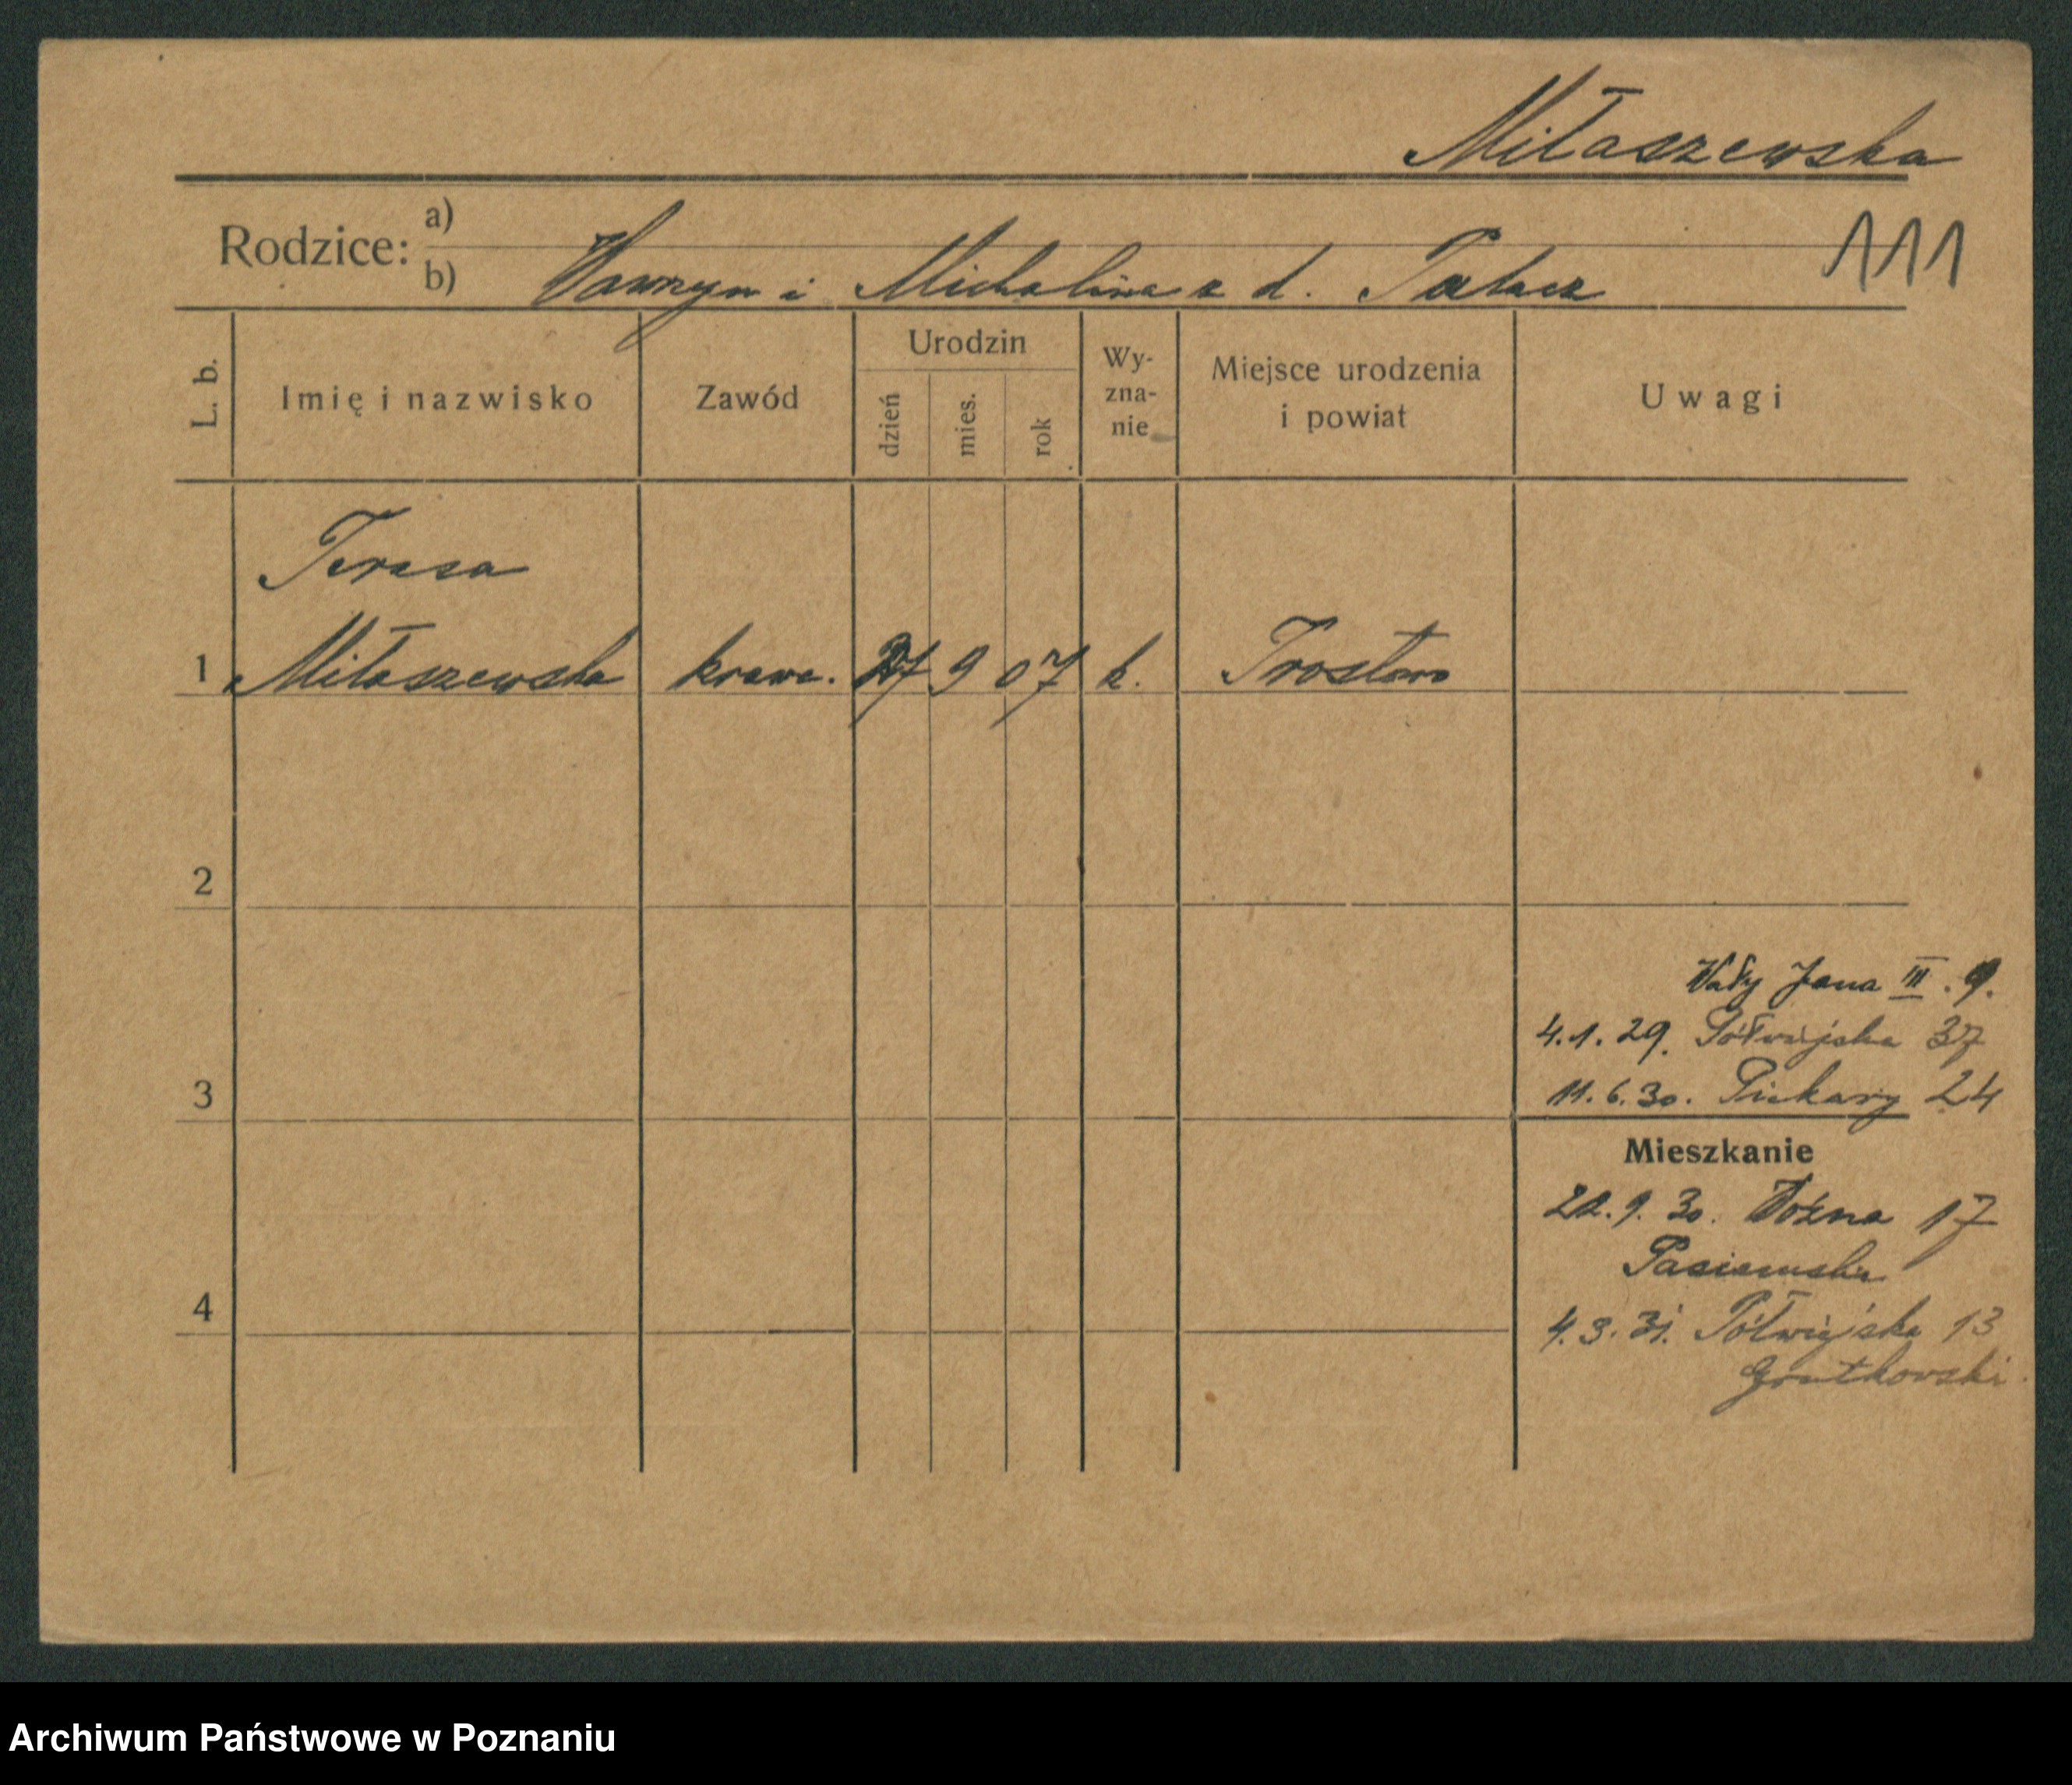 Miłaszewska
111
Rodzice:
a)
b) Wawrzyn i Michalina z d. Patacz
L. b.
Imię i nazwisko
Zawód
Urodzin
dzień
mies.
rok
Wy-
zna-
nie
Miejsce urodzenia
i powiat
Uwagi
Teresa
1 Miłaszewska krawc. 27 9 07 k.
2
Wały Jana III. 9.
4.1.29. Półwiejska 37
3
11.6.30. Piekary 24
Mieszkanie
22.9.30. Woźna 17
4
4.3.31. Półwiejska 13
Archiwum Państwowe w Poznaniu